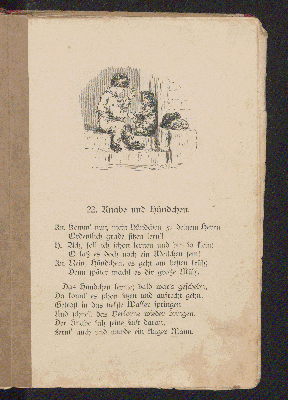 22. Knabe und Hündchen.
Kn. Komm' nun, mein Hündchen, zu deinem Herrn
Ordentlich grade sitzen lern'!
H. Ach, soll ich schon lernen und bin so klein;
O laß es doch noch ein Weilchen sein!
Kn. Nein, Hündchen, es geht am besten früh;
Denn später macht es dir große Müh.
Das Hündchen lernte; bald war's geschehn,
Da konnt' es schon sitzen und aufrecht gehn,
Getrost in das tiefste Wasser springen
Und schnell das Verlorne wieder bringen.
Der Knabe sah seine Lust daran,
Lernt' auch und wurde ein kluger Mann.